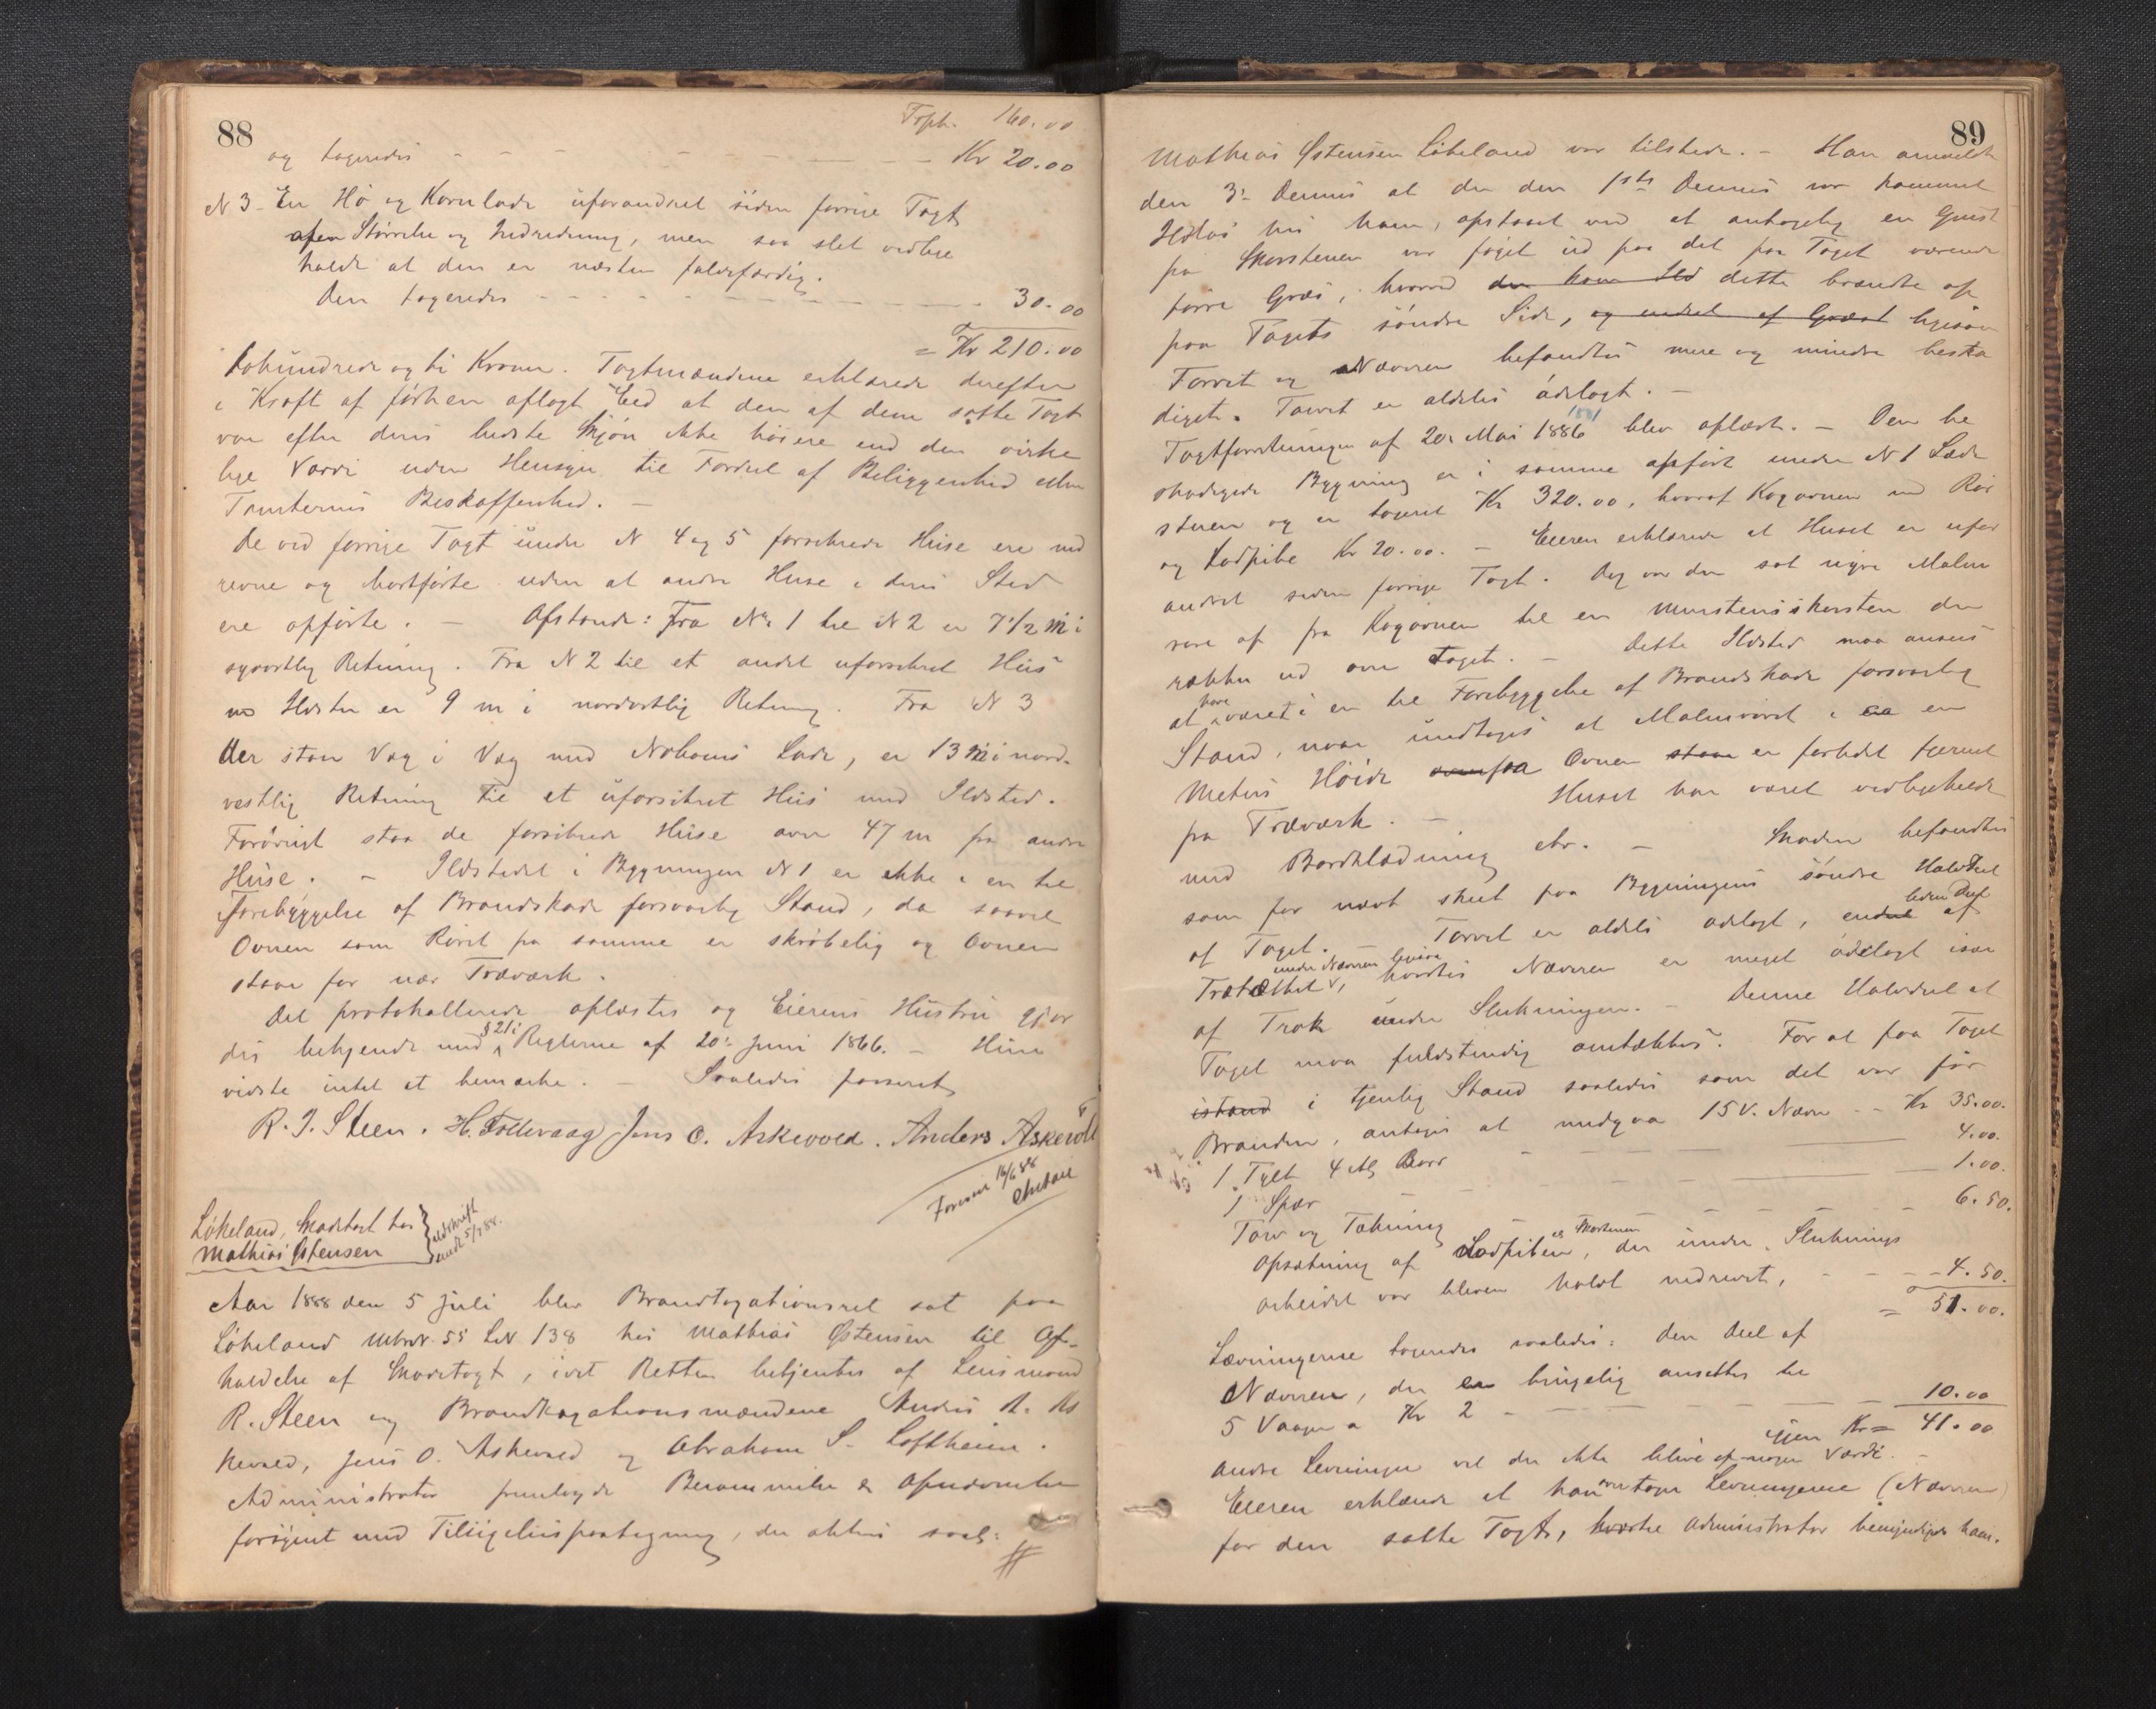 88
Tsph. 160.00
og taxeredes - - - - Kr 20.00
N 3 - En Hø og Kornlade uforandret siden forrige Taxt
af en Størrelse og Indredning, men saa slet vedlige
holdt at den er næsten faldefærdig.
Den taxeredes - - - - 30.00
= Kr 210.00
Tohundrede og ti Kroner. Taxtmændene erklærede derefter
i Kraft af forhen aflagt Eed at den af dem satte Taxt
var efter deres bedste Skjøn ikke høiere end den virke
lige Værdi uden Hensyn til Fordeel af Beliggenhed eller
Tomternes Beskaffenhed. -
De ved forrige Taxt under N 4 og 5 forsikrede Huse ere ned
revne og bortførte uden at andre Huse i deres Sted
ere opførte. - Afstande: Fra N: 1 til N 2 er 7 1/2 m i
sydostlig Retning. Fra N 2 til et andet uforsikret Huus
Ildsted er 9 m i nordostlig Retning. Fra N 3
der staar Væg i Væg med Naboens Lade, er 13 m i nord-
vestlig Retning til et uforsikret Huus med Ildsted.
Forøvrigt staa de forsikrede Huse over 47 m fra andre
Huse. - Ildstedet i Bygningen N 1 er ikke i en til
Forebyggelse af Brandskade forsvarlig Stand, da saavel
Ovnen som Røret fra samme er skrøbelig og Ovnen
staar for nær Træværk.
Det protokollerede oplæstes og Eierens Hustru gjor
des bekjendt med § 21 i Reglerne af 20: Juni 1866. - Hun
vidste intet at bemærke. - Saaledes passeret
R. J. Steen. H. Follevaag Jens O. Askevold. Anders Askevold
Foreviist 16/6 88
Løkeland, Skadetaxt hos
Mathias Østensen
udskrift
sendt 5/7 88.
Aar 1888 den 5 Juli blev Brandtaxationsret sat paa
Løkeland MbrN. 55 LN 138 hos Mathias Østensen til Af-
holdelse af Skadetaxt, idet Retten betjentes af Lensmand
R. Steen og Brandtaxationsmændene Anders A. As
kevold, Jens O. Askevold og Abraham S. Loftheim.
Administrator fremlagde Berammelse
forsynet med Tilsigelsespaategning, der aktes saal:
#
89
Mathias Østensen Løkeland var tilstede. - Han anmeldte
den 3: Dennes at der den 1ste Dennes var kommet
Ildløs hos ham, opstaaet ved at antagelig en Gnist
fra Skorstenen var føget ud paa det paa Taget værende
tørre Græs, hvorved der kom Ild dette brændte op
paa Tagets søndre Side, og endeel af Græset ligesom
Torvet og Næveren befandtes mere og mindre beska
diget. Torvet er aldeles ødelagt. -
Taxtforretningen af 20: Mai 1886 1881 blev oplæst. - Den be
skadigede Bygning er i samme opført under N 1 Lade
stuen og er taxeret Kr 320.00, hvoraf Kogovnen med Rør
og Lodpibe Kr 20.00. - Eieren erklærede at Huset er ufor
andret siden forrige Taxt. Dog var der sat nyere Malm
rør af fra Kogovnen til en Murstensskorsten der
rækker ud over Taget. - Dette Ildsted maa ansees
at have været i en til Forebyggelse af Brandskade forsvarlig
Stand, naar undtages at Malmrøret i en
Meters Høide Ovnen er forlidet fjernet
fra Træværk. - Huset har været vedligeholdt
med Bordklædning etc. - Skaden befandtes
som før nævnt skeet paa Bygningens søndre Halvdeel
af Taget. - Torvet er aldeles ødelagt, endeel liden Deel af
Trætækket under Næveren ligesaa, hvorhos Næveren er meget ødelagt især
af Træk under Slukningen. - Denne Halvdeel af
Taget maa fuldstændig omtækkes. For at faa Taget
istand i tjenlig Stand saaledes som det var før
Branden, antages at medgaa 15 V. Næver - - Kr 35.00.
1 Tylt 4 Al Bord - - - 4.00.
1 Spær - - - 1.00.
Torv og Tækning - - - 6.50.
Opsætning af Lodpiben og Skorstenen, der under Sluknings
arbeidet var bleven holdt nedrevet, - - - 4.50.
= 51.00.
Levningerne taxeredes saaledes: den Deel af
Næveren, der er brugelig ansættes til
5 Vaager a Kr 2 - - - 10.00
igjen Kr = 41.00
Andre Levninger vil der ikke blive af nogen Værdi. -
Eieren erklærede at han overtager Levningerne (Næveren)
for den satte Taxt, hvortil Administrator bemyndigede ham.